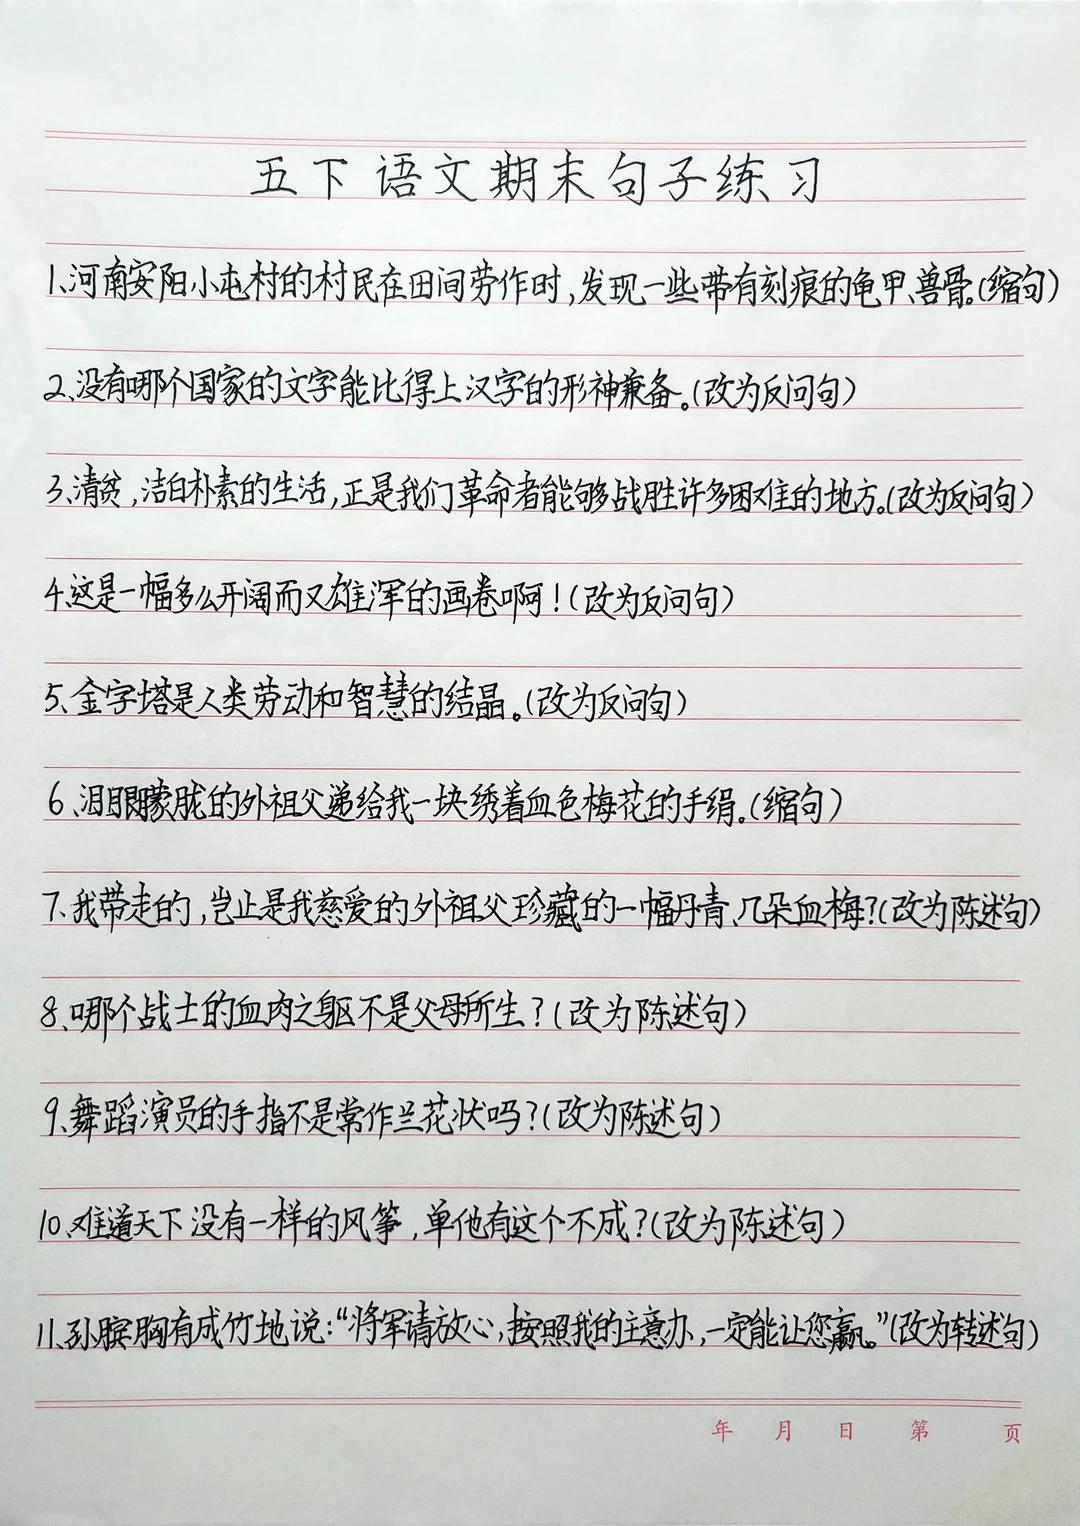 五下语文期末句子练习
1、河南安阳小屯村的村民在田间劳作时,发现一些带有刻痕的龟甲、兽骨。(缩句)
2、没有哪个国家的文字能比得上汉字的形神兼备。(改为反问句)
3、清贫,洁白朴素的生活,正是我们革命者能够战胜许多困难的地方。(改为反问句)
4、这是一幅多么开阔而又雄浑的画卷啊!(改为反问句)
5、金字塔是人类劳动和智慧的结晶。(改为反问句)
6、泪眼朦胧的外祖父递给我一块绣着血色梅花的手绢。(缩句)
7、我带走的,岂止是我慈爱的外祖父珍藏的一幅丹青、几朵血梅?(改为陈述句)
8、哪个战士的血肉之躯不是父母所生?(改为陈述句)
9、舞蹈演员的手指不是常作兰花状吗?(改为陈述句)
10、难道天下没有一样的风筝,单他有这个不成?(改为陈述句)
11、孙膑胸有成竹地说:“将军请放心,按照我的主意办,一定能让您赢。”(改为转述句)
年 月 日 第 页